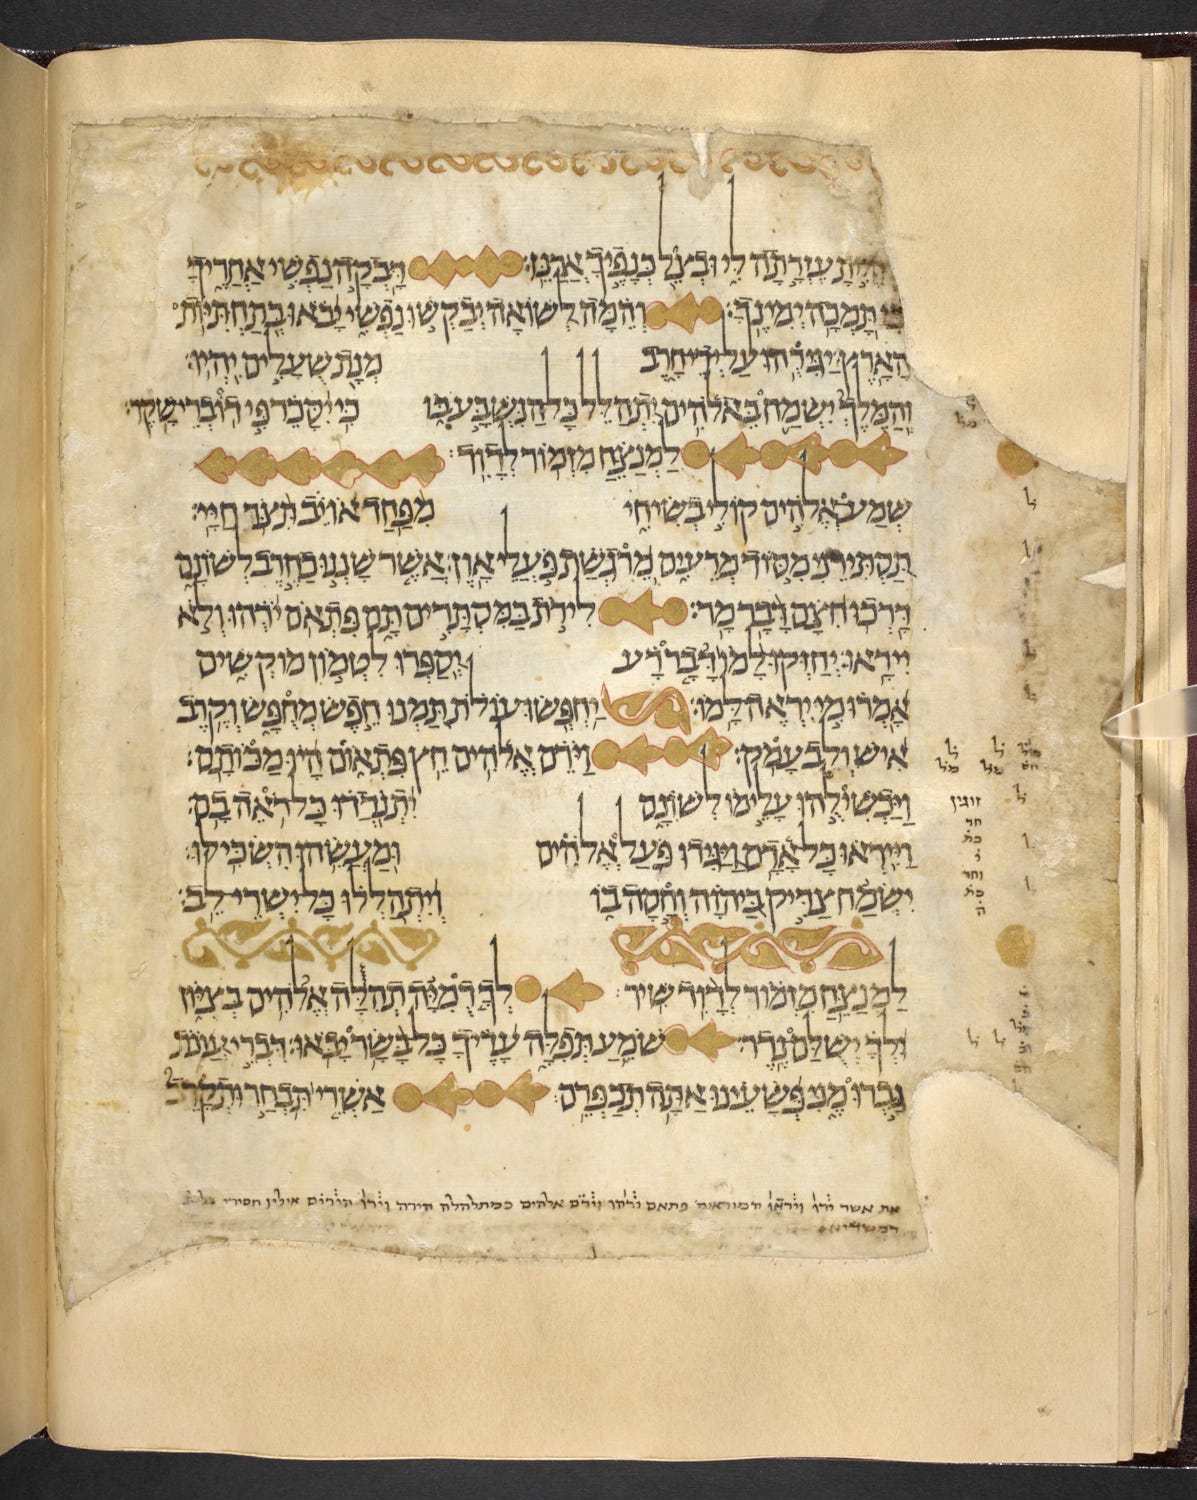 היית עזרתה לי ובצל כנפיך ארנן׃ דבקה נפשי אחריך
בי תמכה ימינך׃ והמה לשואה יבקשו נפשי יבאו בתחתיות
הארץ׃ יגירהו על ידי חרב מנת שעלים יהיו׃
והמלך ישמח באלהים יתהלל כל הנשבע בו כי יסכר פי דוברי שקר׃
למנצח מזמור לדוד׃
שמע אלהים קולי בשיחי מפחד אויב תצר חיי׃
תסתירני מסוד מרעים מרגשת פעלי און׃ אשר שננו כחרב לשונם
דרכו חצם דבר מר׃ לירת במסתרים תם פתאם ירהו ולא
ייראו׃ יחזקו למו דבר רע יספרו לטמון מוקשים
אמרו מי יראה למו׃ יחפשו עולת תמנו חפש מחפש וקרב
איש ולב עמק׃ וירם אלהים חץ פתאום היו מכותם׃
ויכשילהו עלימו לשונם יתנדדו כל ראה בם׃
וייראו כל אדם ויגידו פעל אלהים ומעשהו השכילו׃
ישמח צדיק ביהוה וחסה בו ויתהללו כל ישרי לב׃
למנצח מזמור לדוד שיר׃ לך דמיה תהלה אלהים בציון
ולך ישלם נדר׃ שמע תפלה עדיך כל בשר יבאו׃ דברי עונת
גברו מני פשעינו אתה תכפרם׃ אשרי תבחר ותקרב
זוגין
חד
וחד
את אשר ירו ויראו המוראים פתאם ירהו וירם אלהים כמתלהלה היורה וירו היורים אילין חסירי